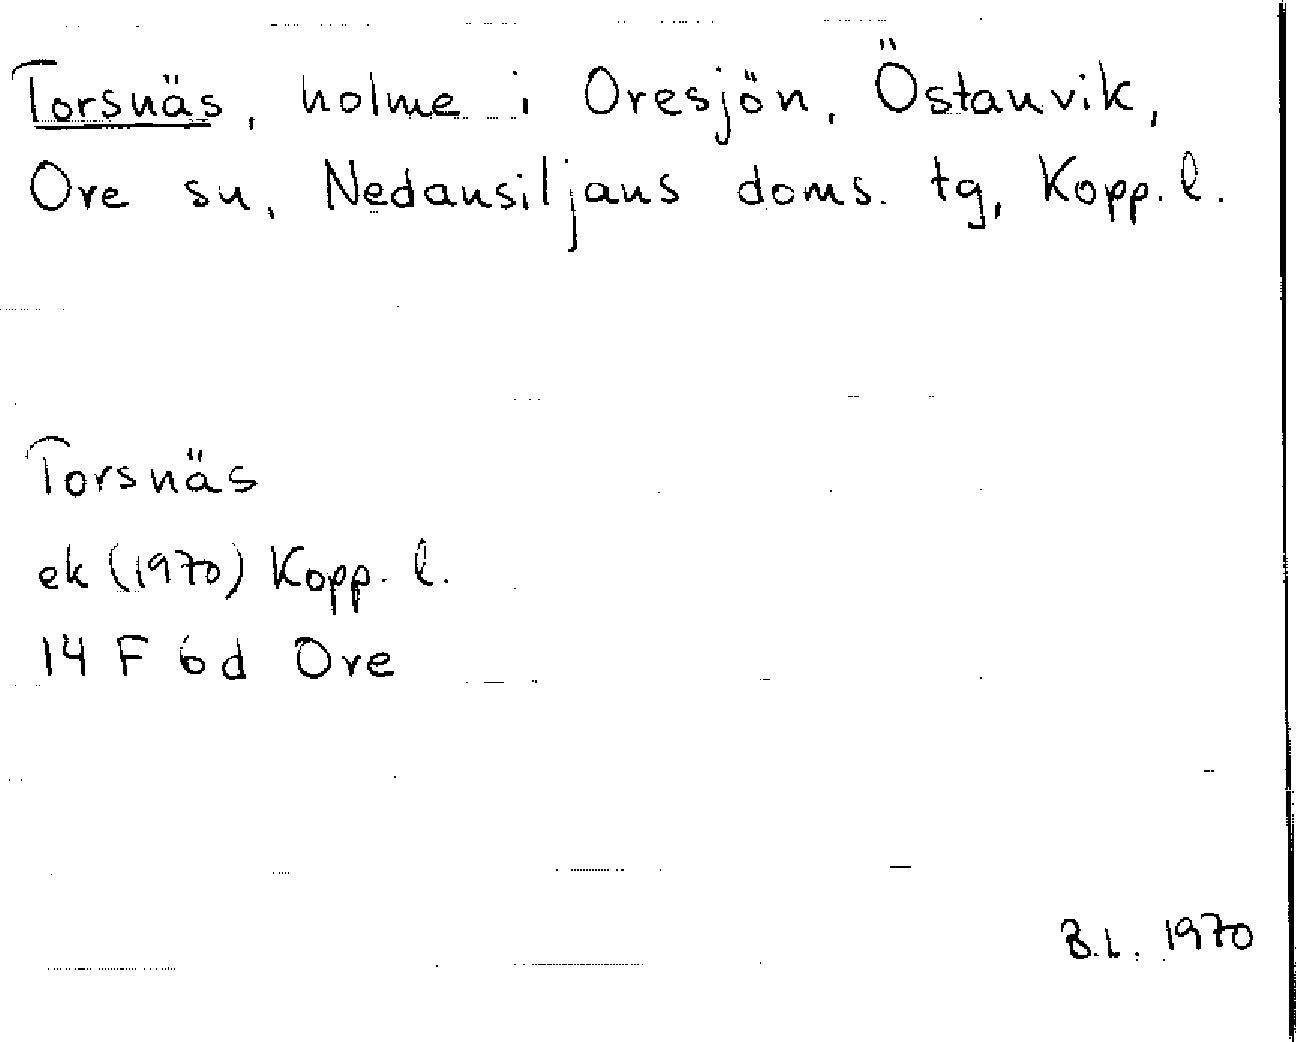 Torsnäs, holme i Oresjön, Östanvik,
Ore sn, Nedansiljans doms. tg, Kopp. l.
Torsnäs
ek (1970) Kopp. l.
14 F 6d Ore
B.L. 1970